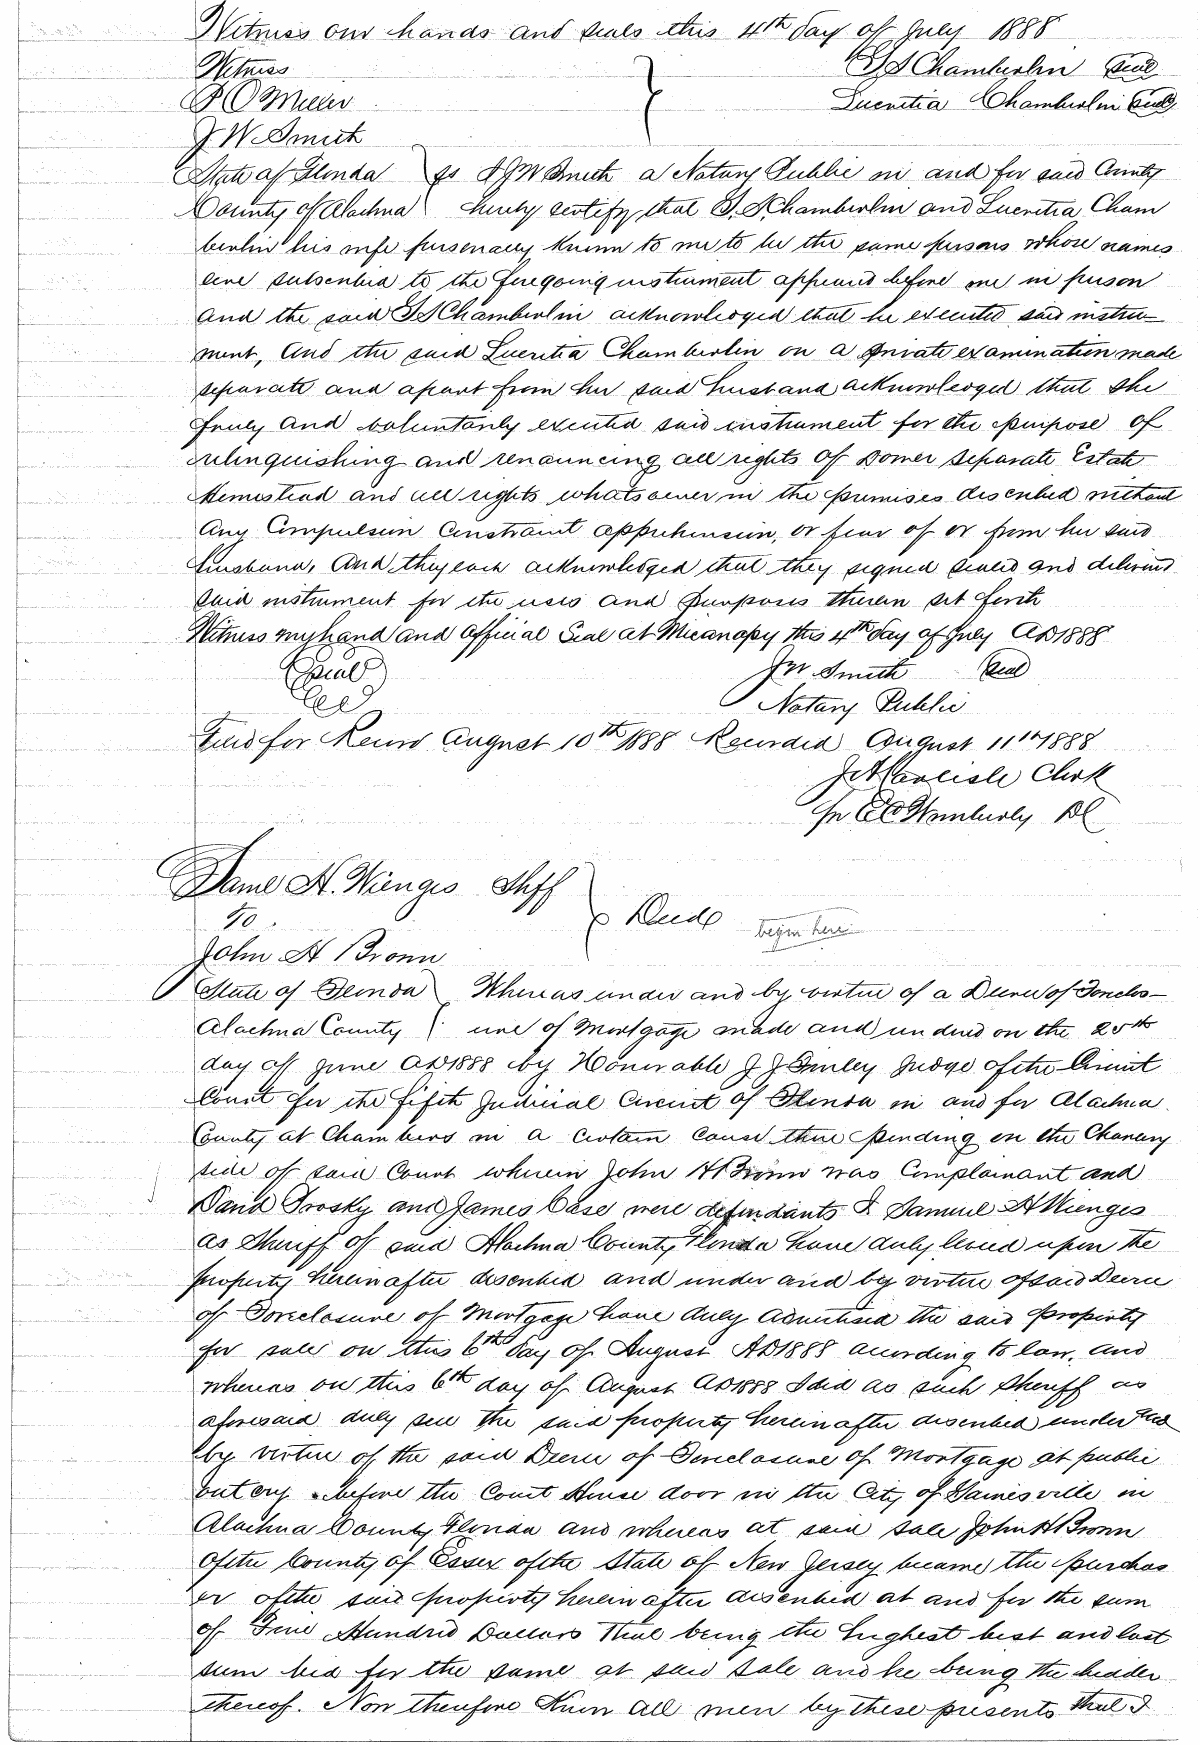 Witness our hands and seals this 4th day of July 1888
Witness S S Chamberlin Seal
P O Miller Lucretia Chamberlin Seal
J. W. Smith
State of Florida ss I J W Smith a Notary Public in and for said County
County of Alachua hereby certify that S. S Chamberlin and Lucretia Cham
berlin his wife personally known to me to be the same persons whose names
are subscribed to the foregoing instrument appeared before me in person
and the said S S Chamberlin acknowledged that he executed said instru-
ment, And the said Lucretia Chamberlin on a private examination made
separate and apart from her said husband acknowledged that she
freely and voluntarily executed said instrument for the purpose of
relinquishing and renouncing all rights of Dower Separate Estate
Homestead and all rights whatsoever in the premises described without
any Compulsion Constraint apprehension, or fear of or from her said
husband, And they each acknowledged that they signed sealed and delivered
said instrument for the uses and purposes therein set forth
Witness my hand and Official Seal at Micanopy this 4th day of July AD 1888
Seal J W. Smith Seal
Notary Public
Filed for Record August 10th 1888 Recorded August 11th 1888
J A Carlisle Clerk
Wimberly DC
Saml H. Wienges Shff
To Deed begin here
John H Brown
State of Florida Whereas under and by virtue of a Decree of Foreclos-
Alachua County ure of Mortgage made and rendered on the 25th
day of June AD 1888 by Honorable J J Finley Judge of the Circuit
Court for the fifth Judicial Circuit of Florida in and for Alachua
County at Chambers in a certain cause there pending on the Chancery
side of said Court wherein John H Brown was Complainant and
David Trosky and James Case were defendants I. Samuel H Wienges
as Sheriff of said Alachua County Florida have duly levied upon the
property hereinafter described and under and by virtue of said Decree
of Foreclosure of Mortgage have duly advertised the said property
for sale on this 6th day of August AD 1888 according to law, and
whereas on this 6th day of August AD 1888 I did as such Sheriff as
aforesaid duly sell the said property hereinafter described under and
by virtue of the said Decree of Foreclosure of Mortgage at public
outcry before the Court House door in the City of Gainesville in
Alachua County Florida and whereas at said sale John H Brown
of the County of Essex of the State of New Jersey became the purchas
er of the said property hereinafter described at and for the sum
of Hundred Dollars that being the highest best and last
sum bid for the same at said sale and he being the bidder
thereof. Now therefore Know all men by these presents that I